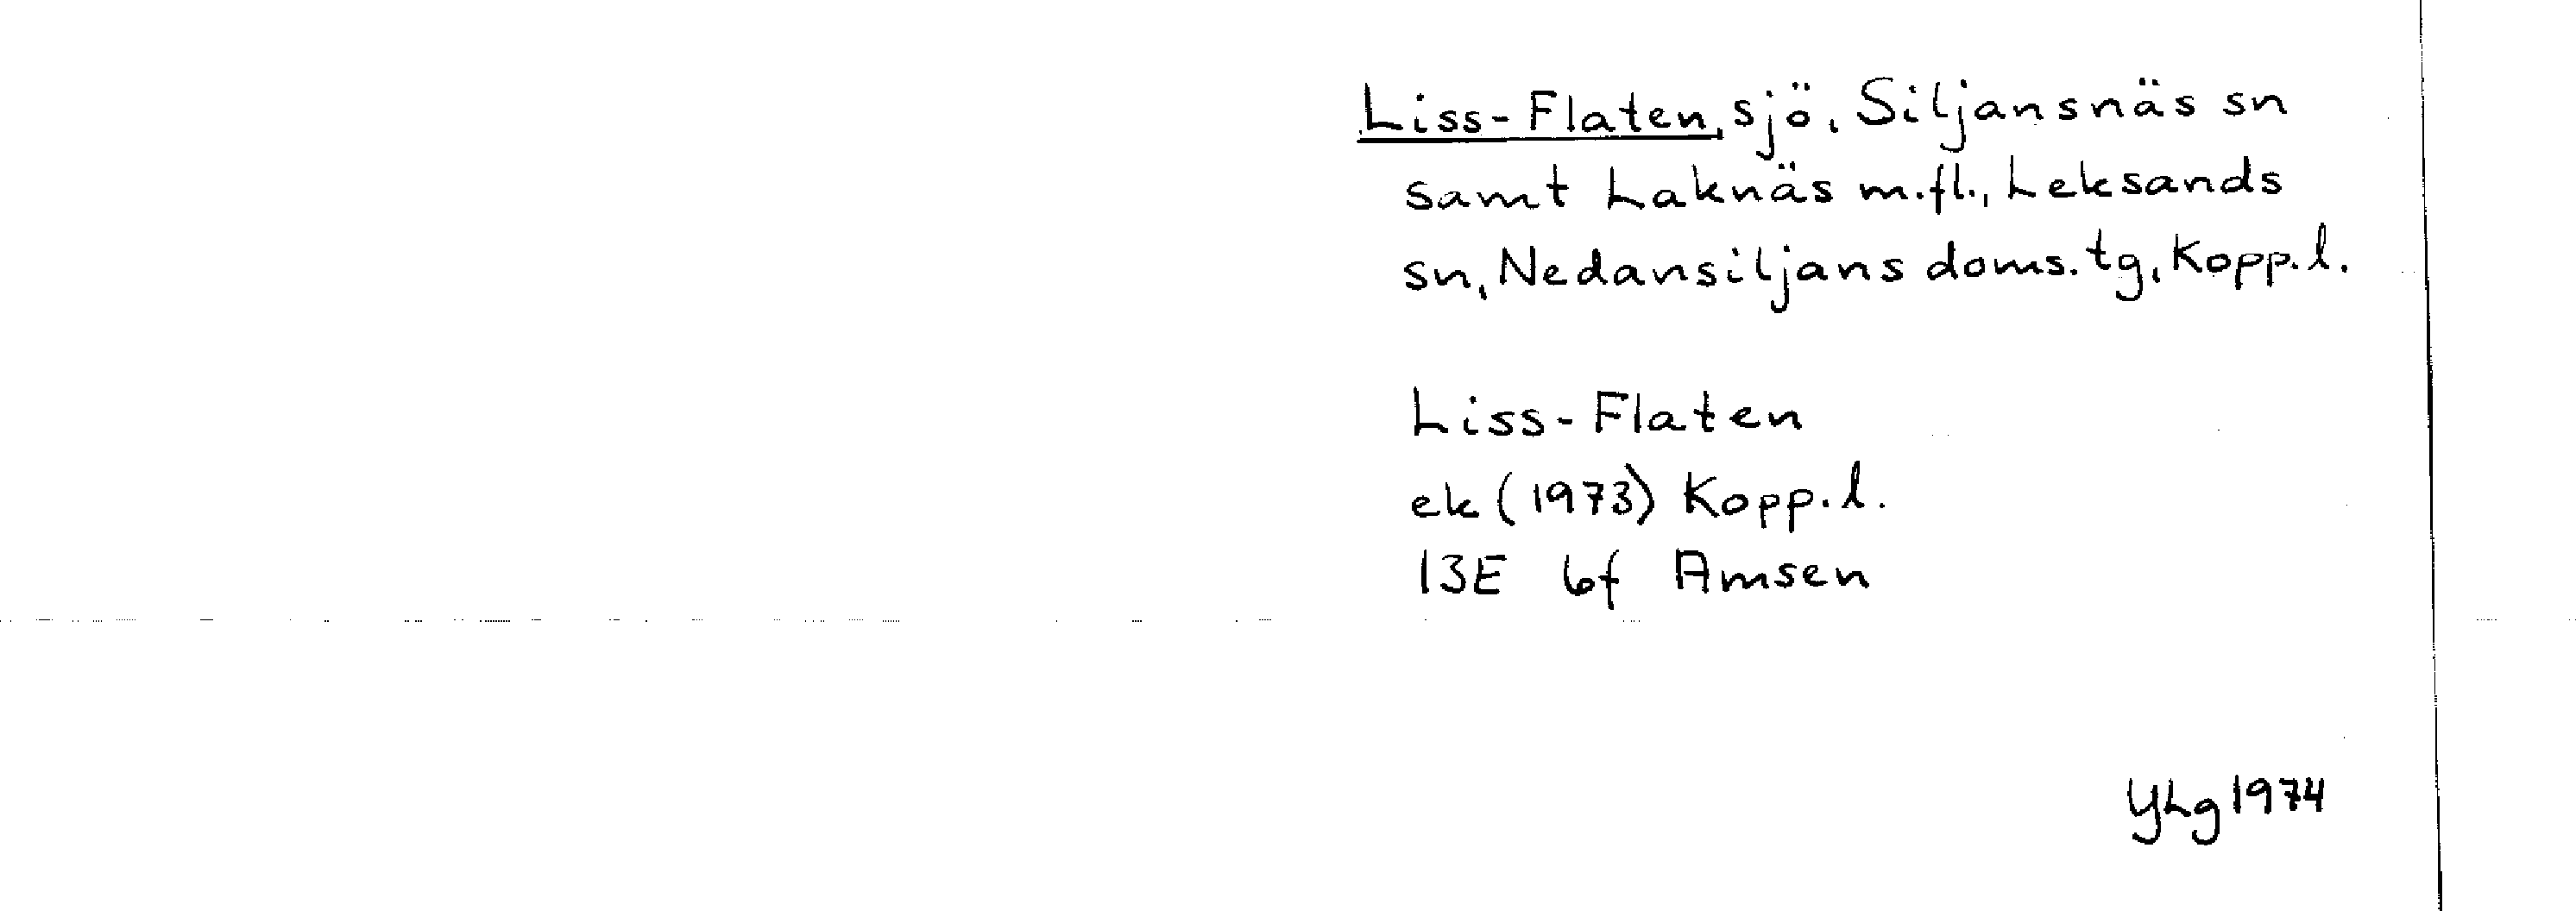 Liss-Flaten, sjö, Siljansnäs sn
samt Laknäs m.fl., Leksands
sn, Nedansiljans doms.tg, Kopp.l.
Liss-Flaten
ek (1973) Kopp.l.
13E 6f Amsen
YLg 1974